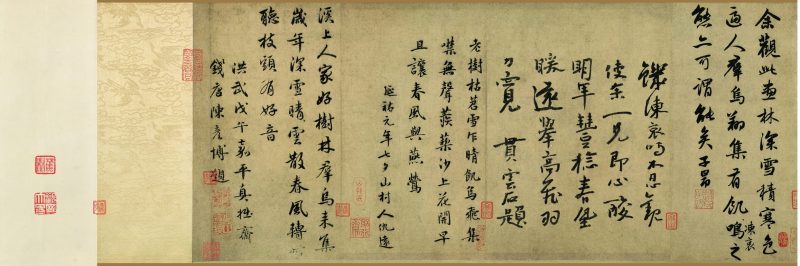 余觀此畫林深雪積寒色
逼人羣烏翔集有飢鳴之
凍哀
態亦可謂能矣子昂
饑凍哀鳴不忍觀
使余一見即心酸
明年豐稔春
暖遂舉高飛羽
寬 貫雲石題
老樹枯苕雪乍晴飢烏飛集
噤無聲蒺藜沙上花開早
且讓春風與燕鶯
延祐元年七夕山村人仇遠
溪上人家好樹林羣烏來集
歲年深雪晴雲散春風轉
聽枝頭有好音
洪武戊午嘉平真拙齋
錢唐陳彥博題